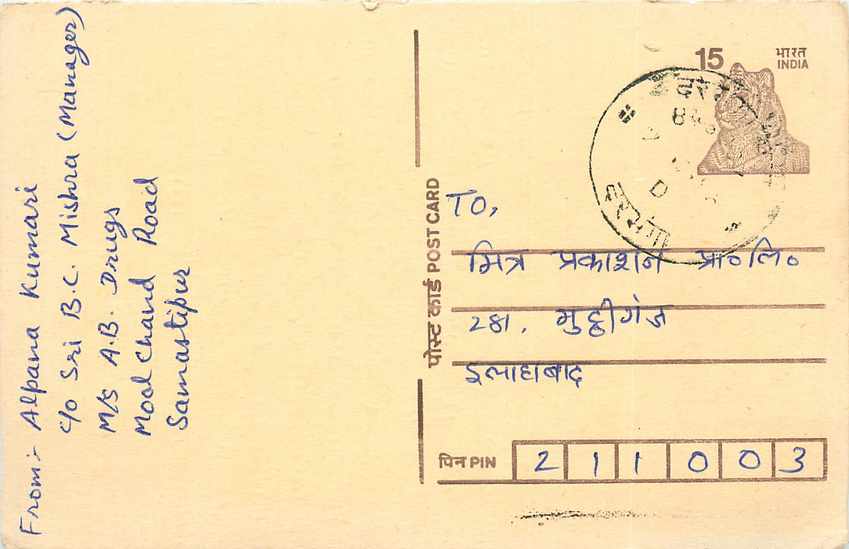 From:- Alpana Kumari
c/o Sri B.C. Mishra (Manager)
M/S A.B. Drugs
Mool Chand Road
Samastipur
पोस्ट कार्ड POST CARD
15
भारत
INDIA
TO,
मित्र प्रकाशन प्रा० लि०
281, मुट्ठीगंज
इलाहाबाद
पिन PIN 2 1 1 0 0 3